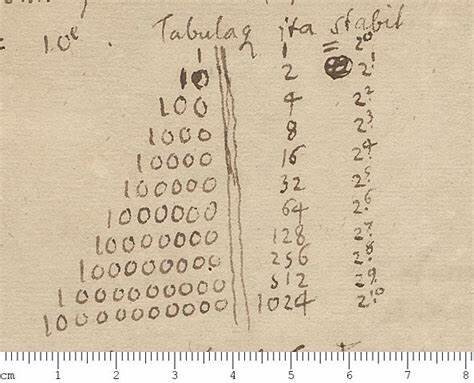 = 10ᵉ. Tabulaq jta stabit
1 1 = 2⁰
10 2 2¹
100 4 2²
1000 8 2³
10000 16 2⁴
100000 32 2⁵
1000000 64 2⁶
10000000 128 2⁷
100000000 256 2⁸
1000000000 512 2⁹
10000000000 1024 2¹⁰
cm 1 2 3 4 5 6 7 8